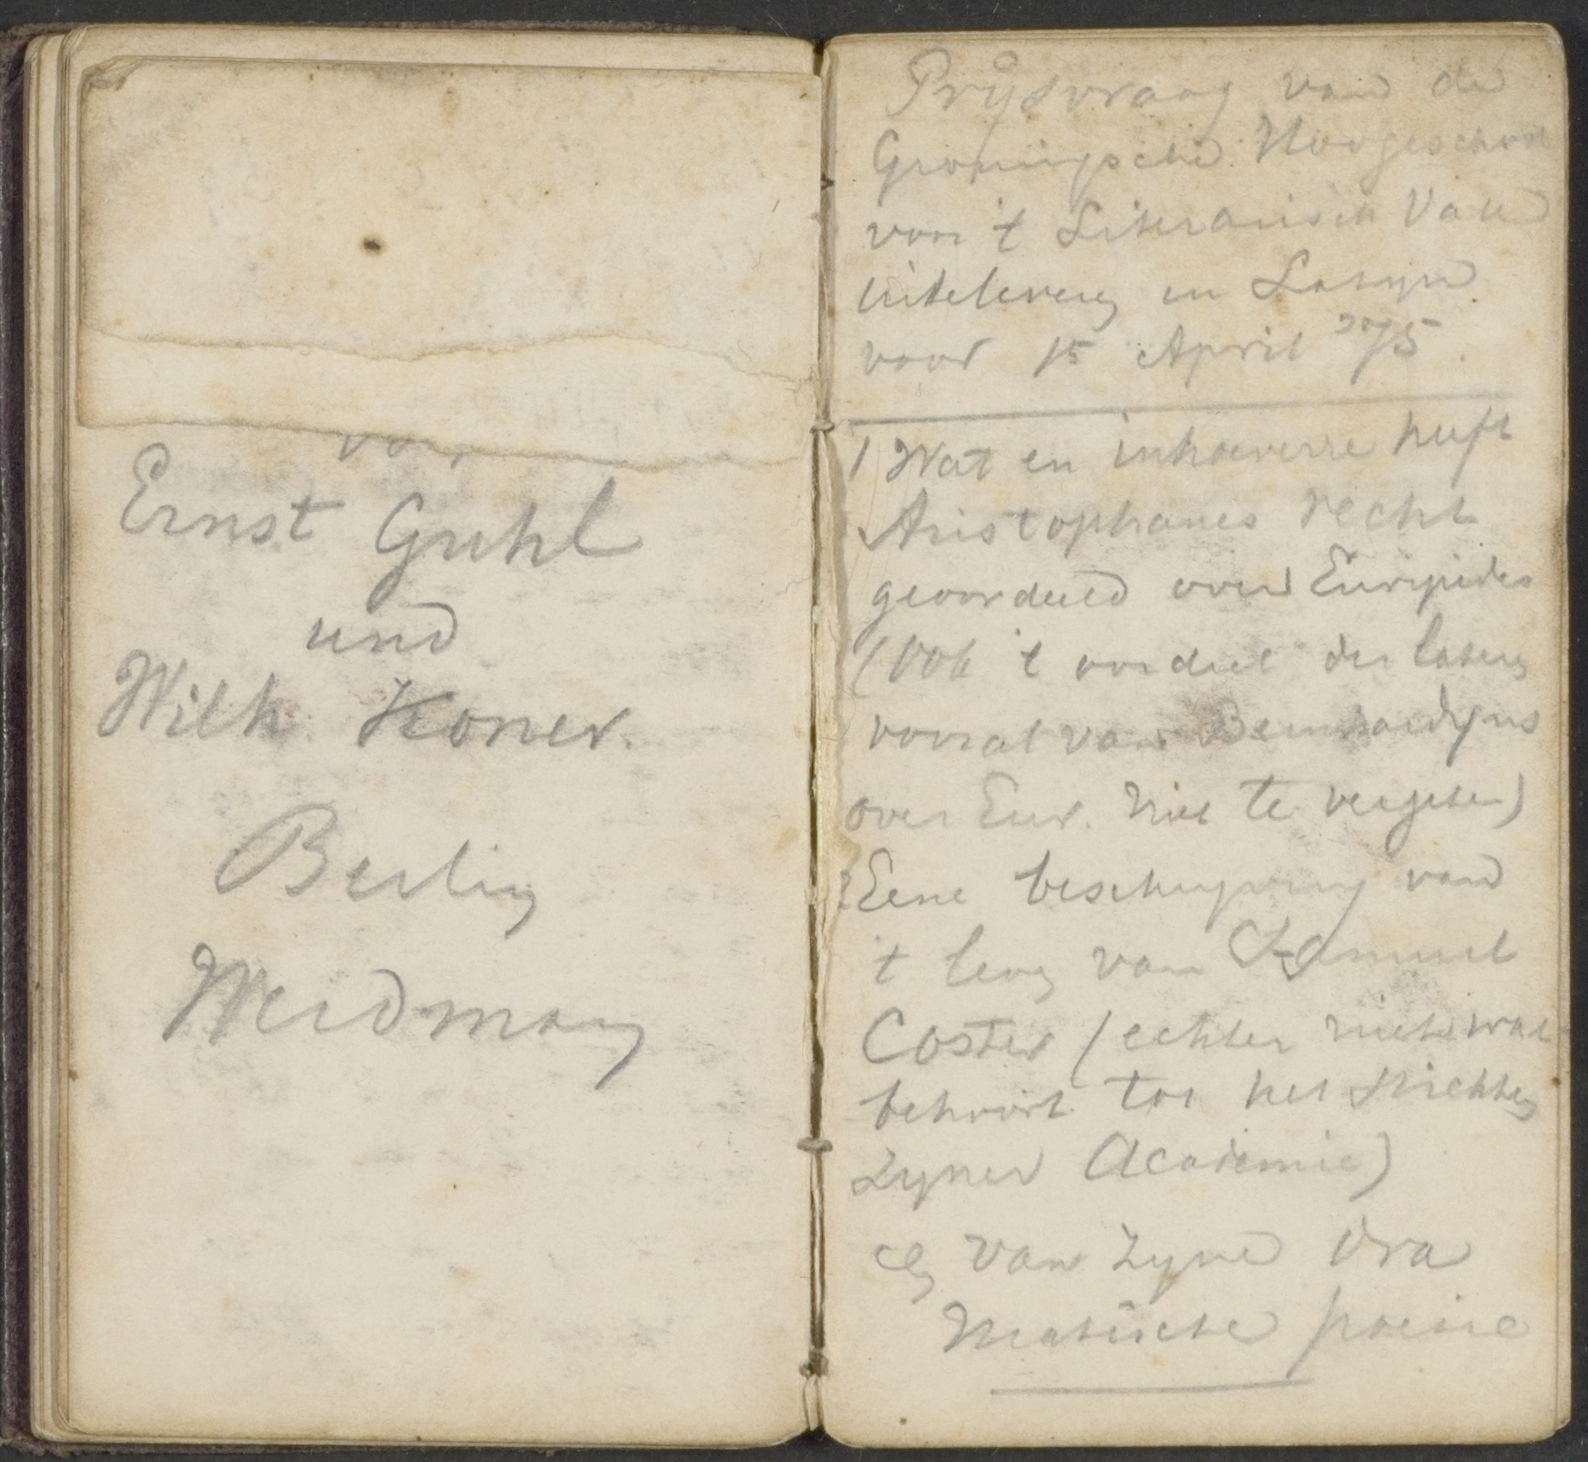 von
Ernst Guhl
und
Wilh. Koner.
Berlin
Weidmann
Prijsvraag van de
Groningsche Hoogeschool
voor 't Literarisch Vak
in Latijn
voor 15 April 75.
1 Wat en inhoeverre heeft
Aristophanes recht
geoordeeld over Euripides
(Ook 't oordeel der lateren
vooral van Bernhardijns
over Eur. niet te vergeten)
2 Eene beschrijving van
't leven van Samuel
Coster (echter niets wat
behoort tot het stichten
zijner Academie)
en van zijne dra
matische poësie